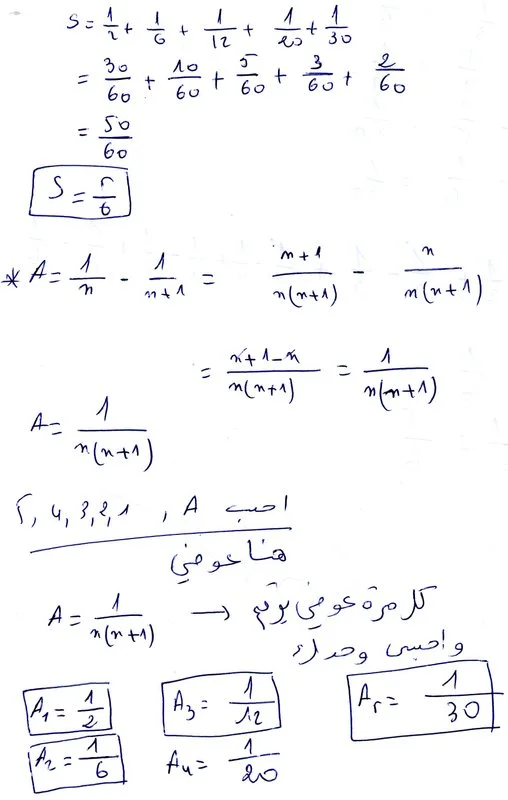 S = 1/2 + 1/6 + 1/12 + 1/20 + 1/30
= 30/60 + 10/60 + 5/60 + 3/60 + 2/60
= 50/60
S = 5/6
* A = 1/n - 1/(n+1) = (n+1)/(n(n+1)) - n/(n(n+1))
= (n+1-n)/(n(n+1)) = 1/(n(n+1))
A = 1/(n(n+1))
احسب A , 1, 2, 3, 4, 5
هنا عوضي
A = 1/(n(n+1)) → كل مرة عوضي برقم
واحسبي وحدك
A₁ = 1/2 A₃ = 1/12 A₅ = 1/30
A₂ = 1/6 A₄ = 1/20